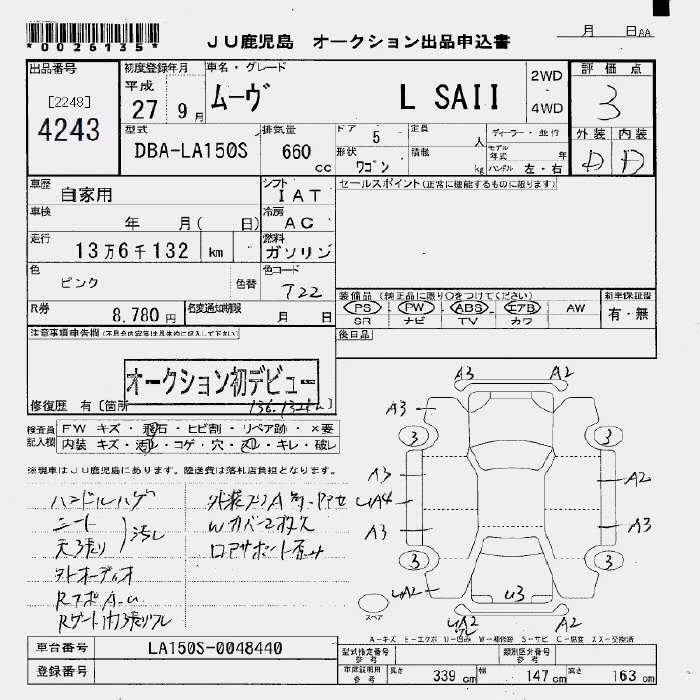 *0026135*
JU鹿児島 オークション出品申込書
月 日AA
出品番号
[2248]
4243
初度登録年月
平成
27 9月
車名・グレード
ムーヴ L SAII
2WD
4WD
評価点
3
外装 内装
D D
型式
DBA-LA150S
排気量
660 cc
ドア 5
形状 ワゴン
定員 人
積載 kg
ディーラー・並行
モデル年式 年
ハンドル 左・右
車歴 自家用
シフト IAT
セールスポイント(正常に機能するものに限ります)
車検 年 月( 日)
冷房 AC
走行 13万6千132 km
燃料 ガソリン
色 ピンク 色替
色コード T22
R券 8,780円
名変通知期限 月 日
装備品(純正品に限り○をつけてください)
PS PW ABS エアB AW
SR ナビ TV カワ
新車保証書
有・無
後日品
注意事項申告欄(不具合内容等は具体的に記入して下さい)
オークション初デビュー
修復歴 有[箇所
136,132km]
検査員記入欄
FW キズ・飛石・ヒビ割・リペア跡・×要
内装 キズ・汚れ・コゲ・穴・スレ・キレ・破レ
※現車はJU鹿児島にあります。陸送費は落札店負担となります。
ハンドルハゲ
シート
天張り 汚れ
外オーディオ
A3 A2
A3 A2
3 3
A3 A2
A4
A3 A3
3 3
UA2 U3
UA2 A2
スペア
A-キズ E-エクボ U-凹み W-補修跡 S-サビ C-腐食 XX-交換済
車台番号 LA150S-0048440
登録番号
型式指定番号 参考
類別区分番号 参考
車庫証明用 参考
長さ 339cm 幅 147cm 高さ 163cm